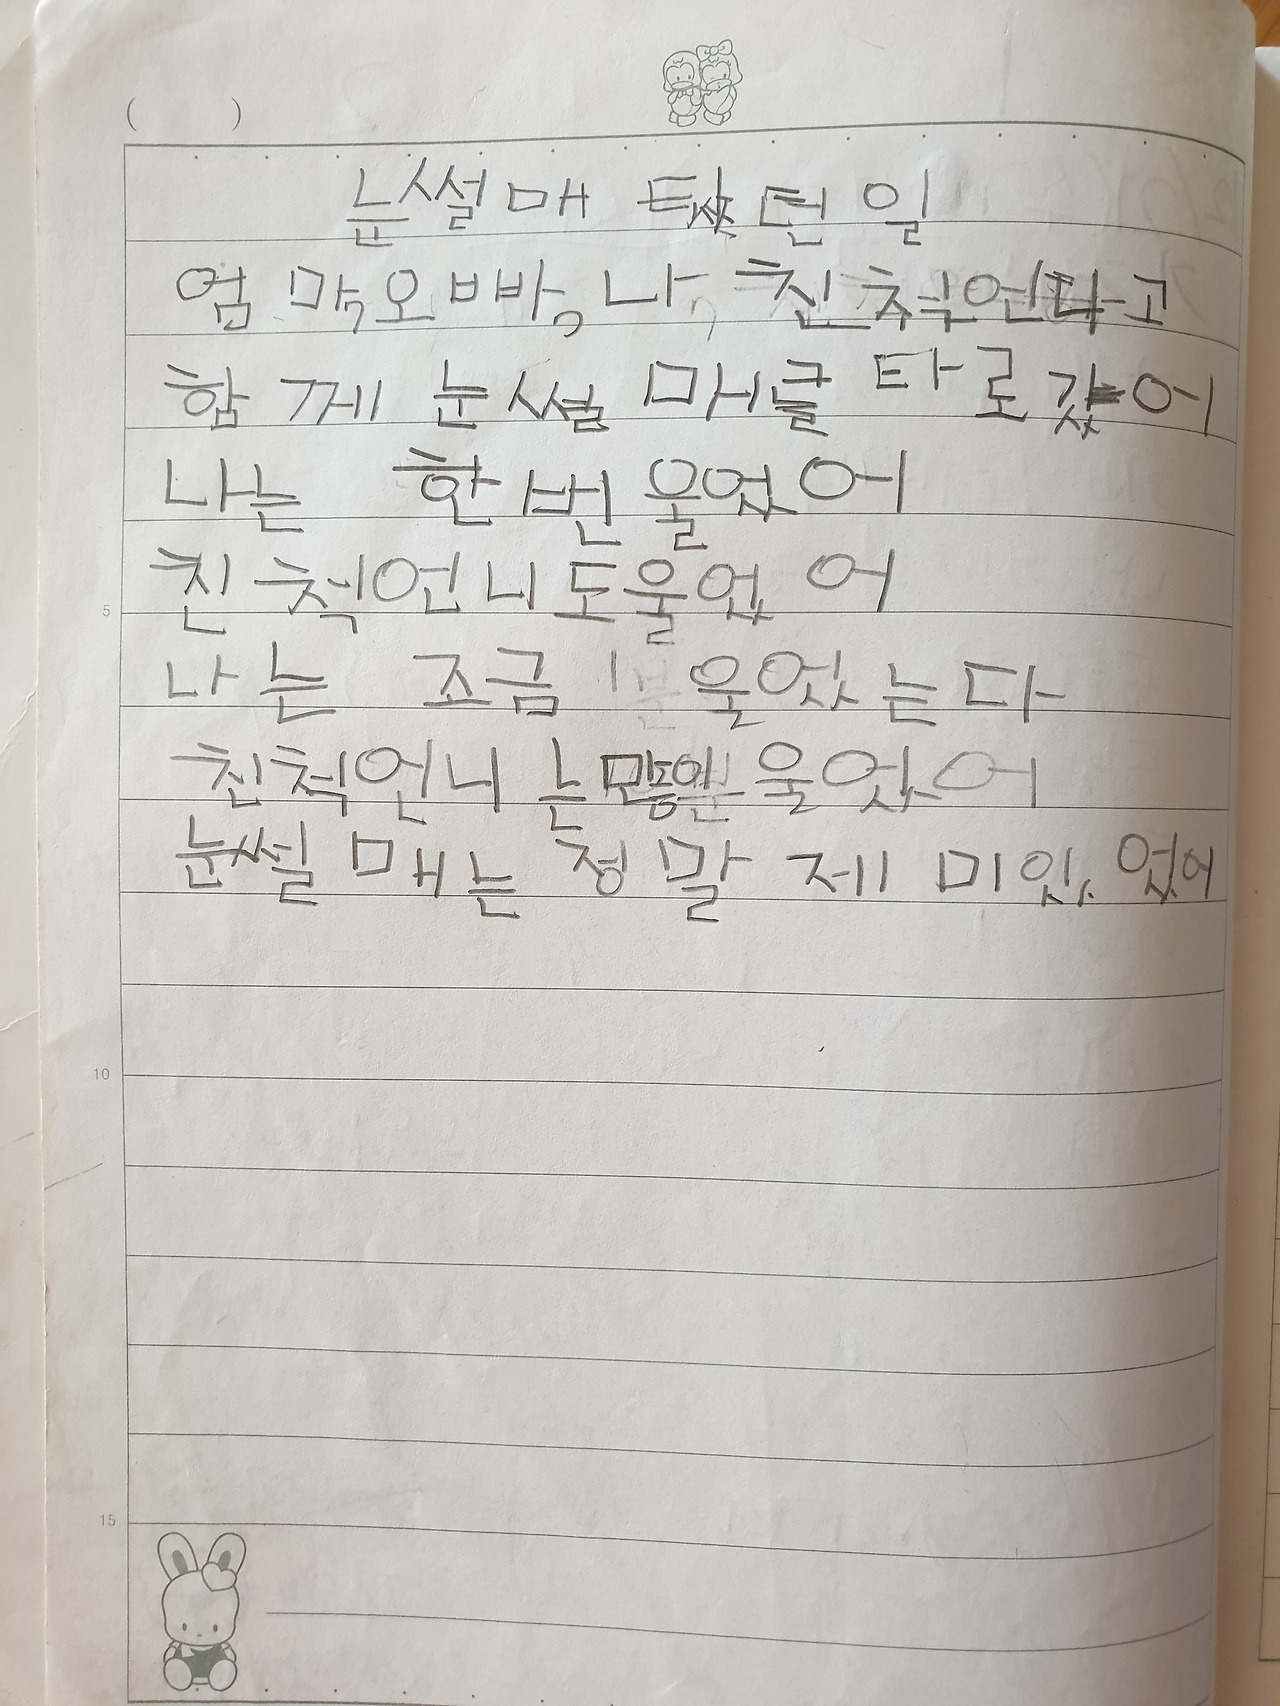 눈썰매 탔던 일
엄마, 오빠, 나, 친척언니다고
함께 눈썰매를 타로 갔어
나는 한번 울었어
친척언니도 울었어
나는 조금 울었는다
친척언니는 많이 울었어
눈썰매는 정말 제미있었어
5
10
15